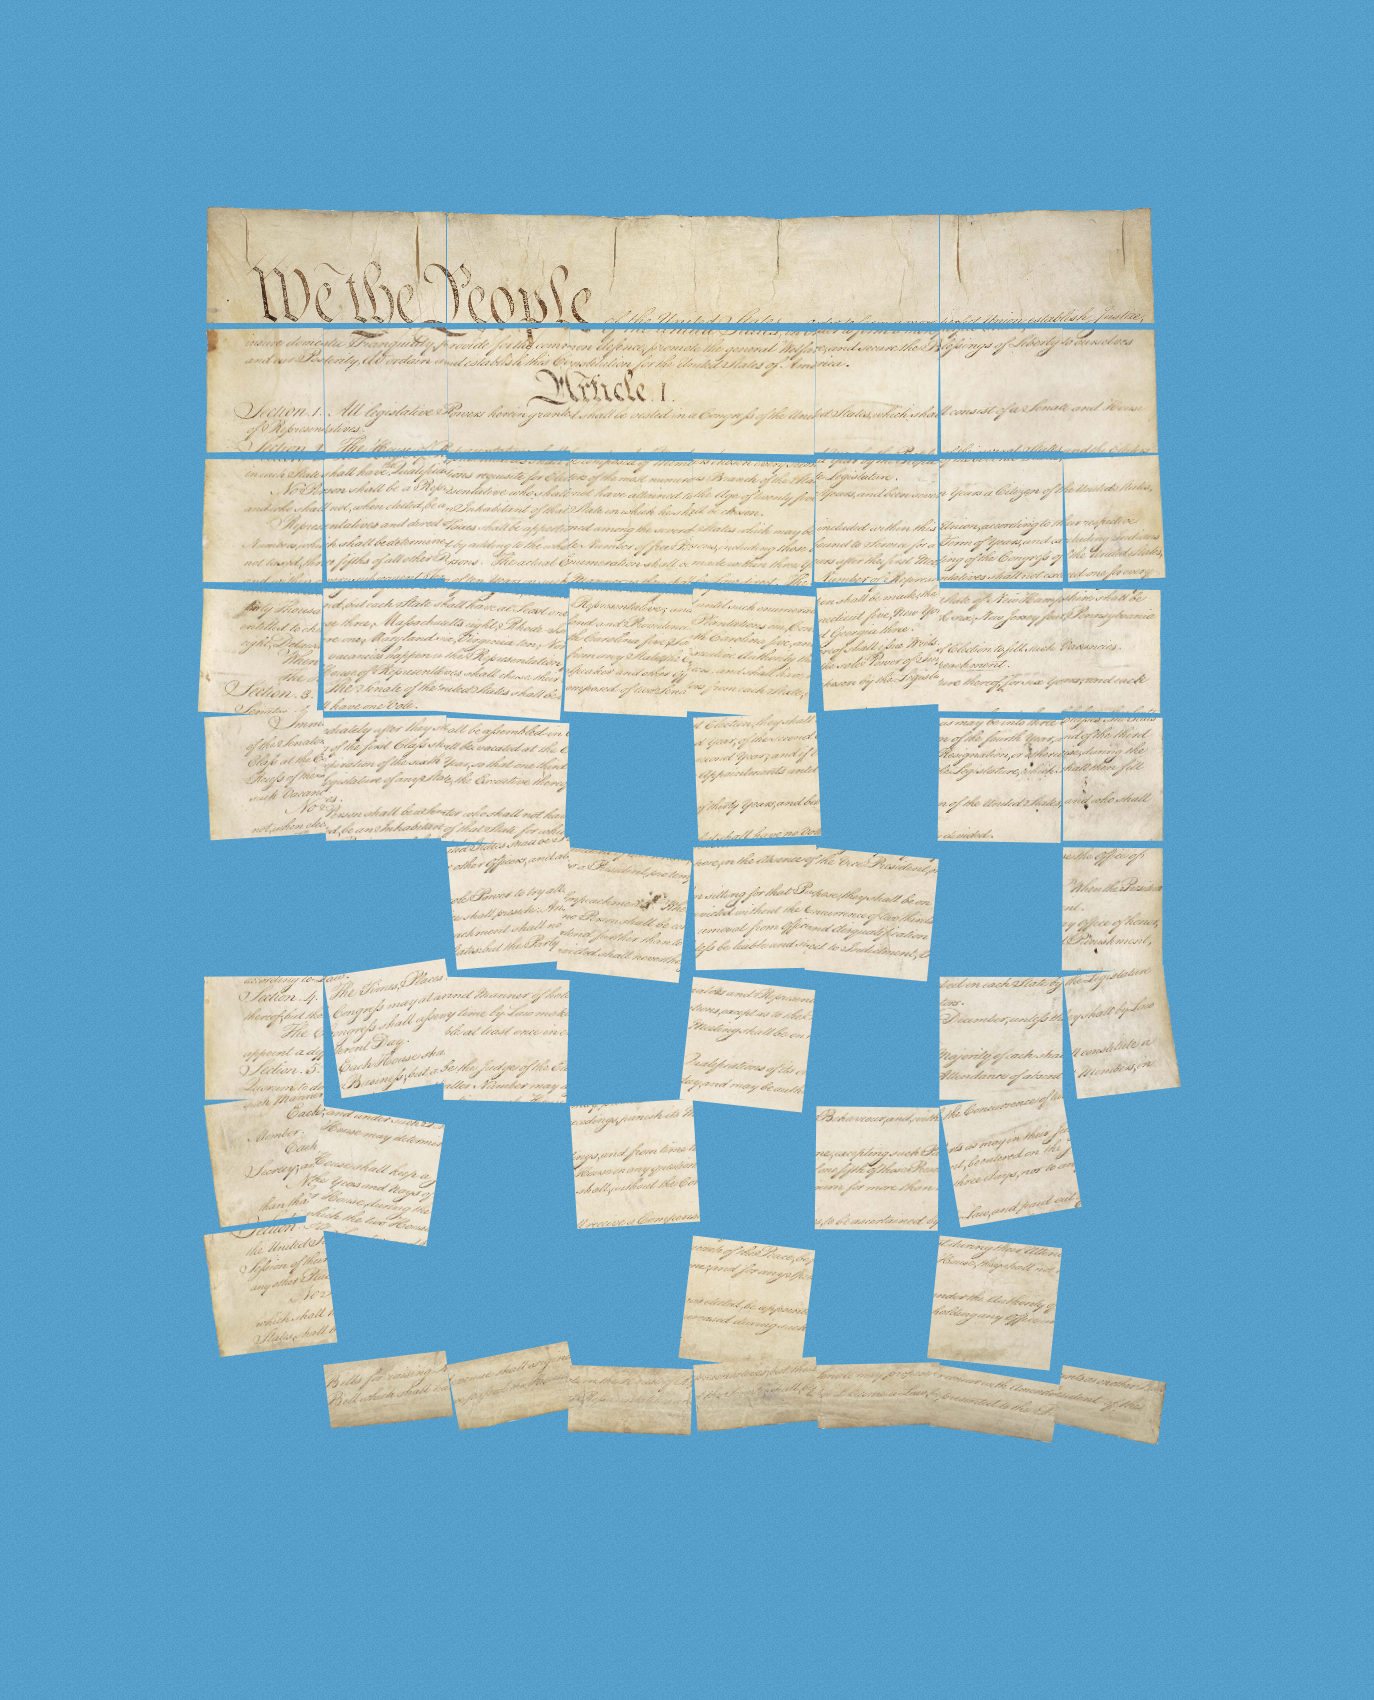 We the People of the United States, in Order to form a more perfect Union, establish Justice,
insure domestic Tranquility, provide for the common defence, promote the general Welfare, and secure the Blessings of Liberty to ourselves
and our Posterity, do ordain and establish this Constitution for the United States of America.
Article I.
Section. 1. All legislative Powers herein granted shall be vested in a Congress of the United States, which shall consist of a Senate and House
of Representatives.
Section. 2. The House of Representatives shall be composed of Members chosen every second Year by the People of the several States, and the Electors
in each State shall have Qualifications requisite for Electors of the most numerous Branch of the State Legislature.
No Person shall be a Representative who shall not have attained to the Age of twenty five Years, and been seven Years a Citizen of the United States,
and who shall not, when elected, be an Inhabitant of that State in which he shall be chosen.
Representatives and direct Taxes shall be apportioned among the several States which may be included within this Union, according to their respective
Numbers, which shall be determined by adding to the whole Number of free Persons, including those bound to Service for a Term of Years, and excluding Indians
not taxed, three fifths of all other Persons. The actual Enumeration shall be made within three Years after the first Meeting of the Congress of the United States,
and within every subsequent Term of ten Years, in such Manner as they shall by Law direct. The Number of Representatives shall not exceed one for every
thirty Thousand, but each State shall have at Least one Representative; and until such enumeration shall be made, the State of New Hampshire shall be
entitled to chuse three, Massachusetts eight, Rhode Island and Providence Plantations one, Connecticut five, New York six, New Jersey four, Pennsylvania
eight, Delaware one, Maryland six, Virginia ten, North Carolina five, South Carolina five, and Georgia three.
When vacancies happen in the Representation from any State, the Executive Authority thereof shall issue Writs of Election to fill such Vacancies.
The House of Representatives shall chuse their Speaker and other Officers; and shall have the sole Power of Impeachment.
Section. 3. The Senate of the United States shall be composed of two Senators from each State, chosen by the Legislature thereof, for six Years; and each
Senator shall have one Vote.
Immediately after they shall be assembled in C t Election, they shall as may be into three Classes. The Seats
of the Senators of the first Class shall be vacated at the E d Year, of the second n of the fourth Year, and of the third
Class at the Expiration of the sixth Year, so that one third second Year; and if Resignation, or otherwise, during the
Recess of the Legislature of any State, the Executive thereof Appointments until the Legislature, which shall then fill
such Vacancies.
No Person shall be a Senator who shall not have of thirty Years, and been n of the United States, and who shall
not, when elected, be an Inhabitant of that State for which
but shall have no Vote divided.
other Officers, and al a President pro tem here, in the Absence of the Vice President, or the Office of
ole Power to try all Impeachments. When sitting for that Purpose, they shall be on When the President
shall preside: And no Person shall be con victed without the Concurrence of two thirds nt.
achment shall not extend further than to removal from Office, and disqualification ny Office of honor,
but the Party convicted shall nevertheless be liable and subject to Indictment, Punishment,
according to Law.
Section. 4. The Times, Places and Manner of hold enators and Represen bed in each State by the Legislature
thereof; but the Congress may at any time by Law make tions, except as to the tors.
The Congress shall assemble at least once in e Meeting shall be on December, unless they shall by Law
appoint a different Day.
Section. 5. Each House shall be the Judge of the E Qualifications of its ow Majority of each shall constitute a
Quorum to do Business; but a smaller Number may a day, and may be auth Attendance of absent Members, in
such Manner, and under such
Each House may determine edings, punish its M Behaviour, and, with the Concurrence of
Member.
Each House shall keep a ings, and from time to me, excepting such Parts as may in their Ju
Secrecy; and the Yeas and Nays of House on any question one fifth of those Present, be entered on the J
Neither House, during the shall, without the Con urn for more than three days, nor to any
than that in which the two Houses
Section. l receive a Compensa s, to be ascertained by Law, and paid out
the United S reach of the Peace, be t during their Attend
Session of their me; and for any Spee House, they shall not
any other Place
No S vice elected, be appointe under the Authority of
which shall creased during such holding any Office un
States, shall
Bills for raising R evenue shall originate in the House of R epresentatives; but the Senate may propose or concur with Amendments as on other Bills.
Bill which shall ha ve passed the House the Represen d the Senate, shall, before it become a Law, be presented to the President of the